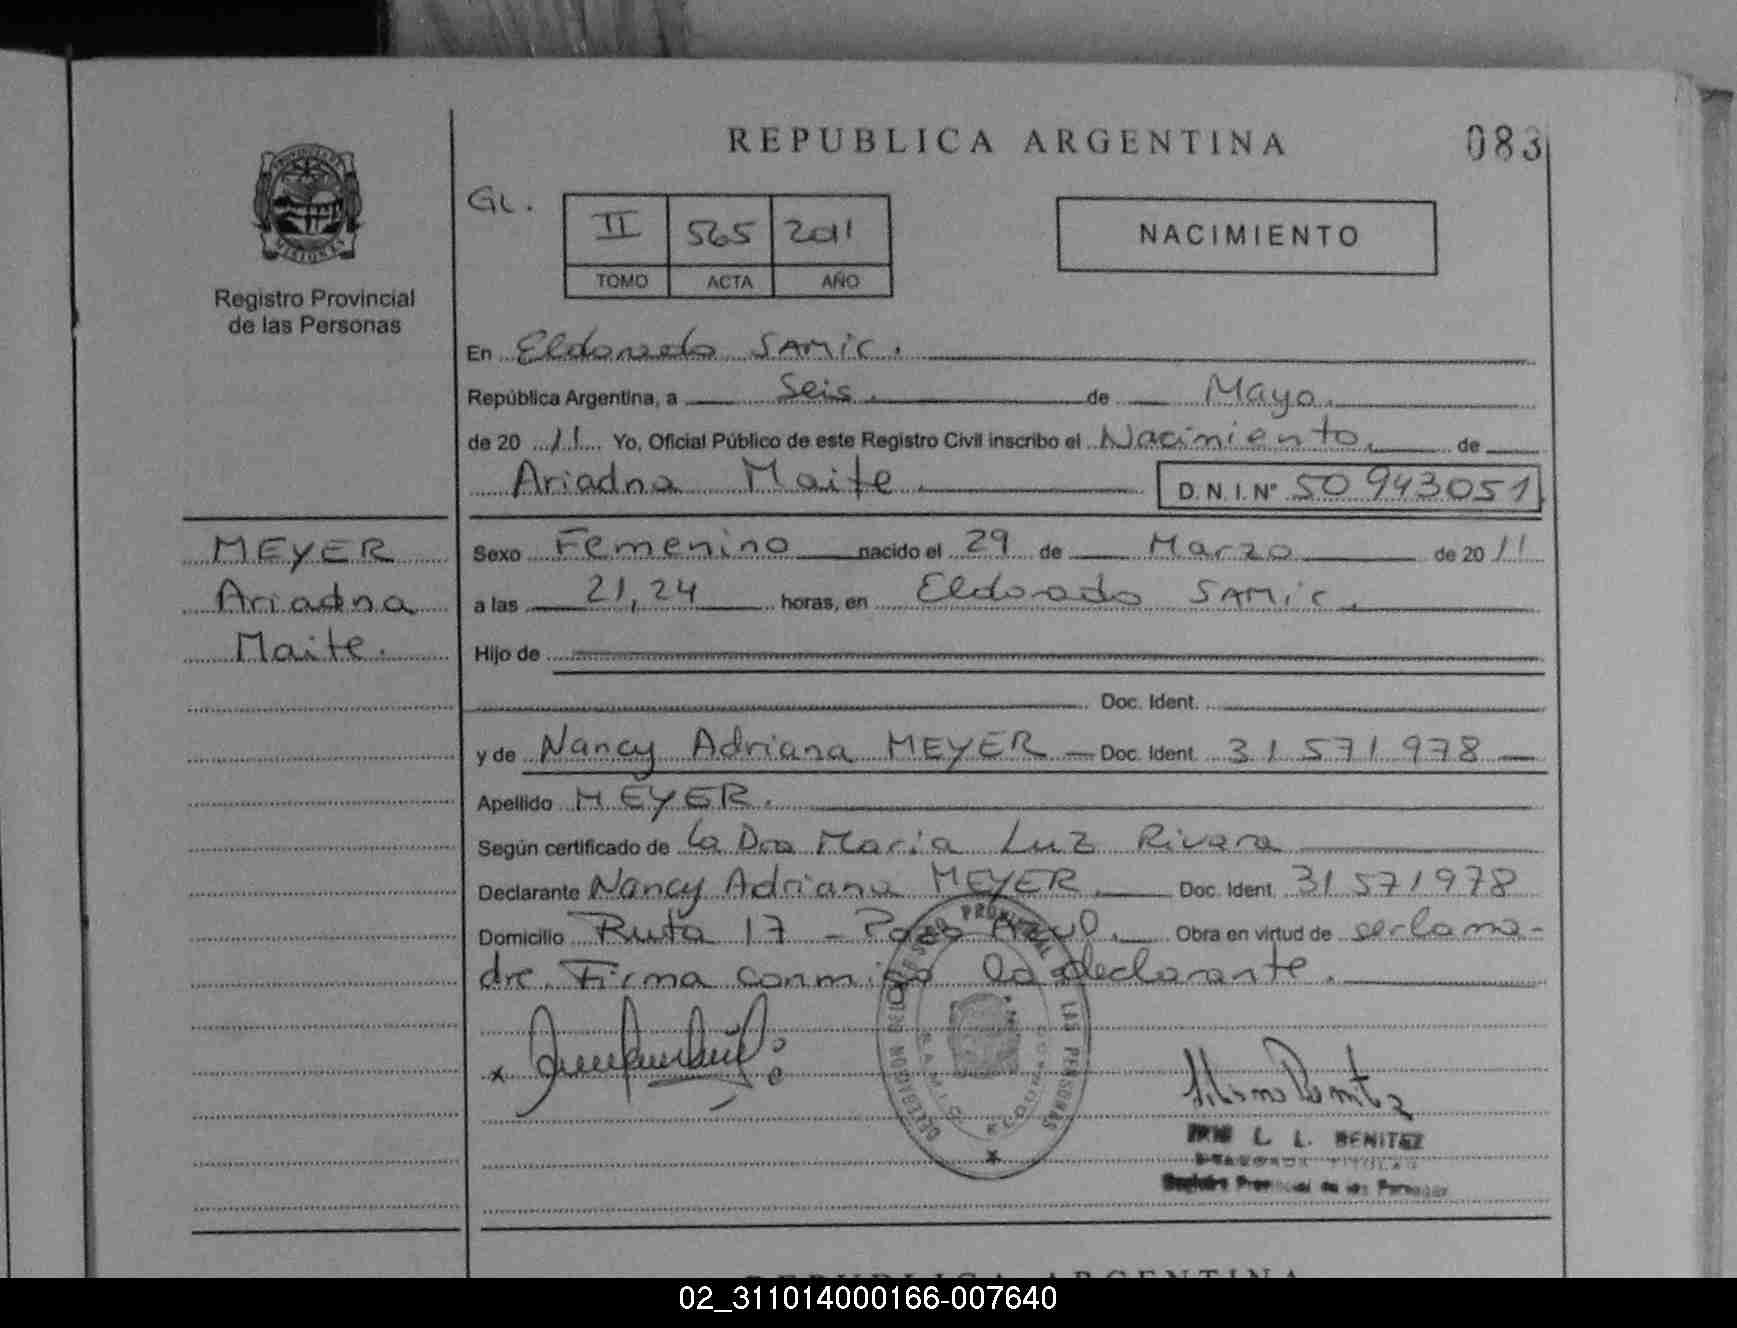 REPUBLICA ARGENTINA
083
PROVINCIA DE
MISIONES
Registro Provincial
de las Personas
GL.
II 565 2011
TOMO ACTA AÑO
NACIMIENTO
En Eldorado SAMIC.
República Argentina, a Seis. de Mayo.
de 2011 Yo, Oficial Público de este Registro Civil inscribo el Nacimiento. de
Ariadna Maite D.N.I.Nº 50943051
MEYER
Ariadna
Maite.
Sexo Femenino nacido el 29 de Marzo de 2011
a las 21,24 horas, en Eldorado SAMIC.
Hijo de
Doc. Ident.
y de Nancy Adriana MEYER Doc. Ident. 31571978
Apellido MEYER.
Según certificado de la Dra Maria Luz Rivera
Declarante Nancy Adriana MEYER. Doc. Ident. 31571978
Domicilio Ruta 17 - Pozo Azul. Obra en virtud de ser la ma-
dre. Firma conmigo la declarante.
x
DELEGACION REGISTRO PROVINCIAL LAS PERSONAS
SAMIC ELDORADO
L. L. BENITEZ
Registro Provincial de las Personas
REPUBLICA ARGENTINA
02_311014000166-007640